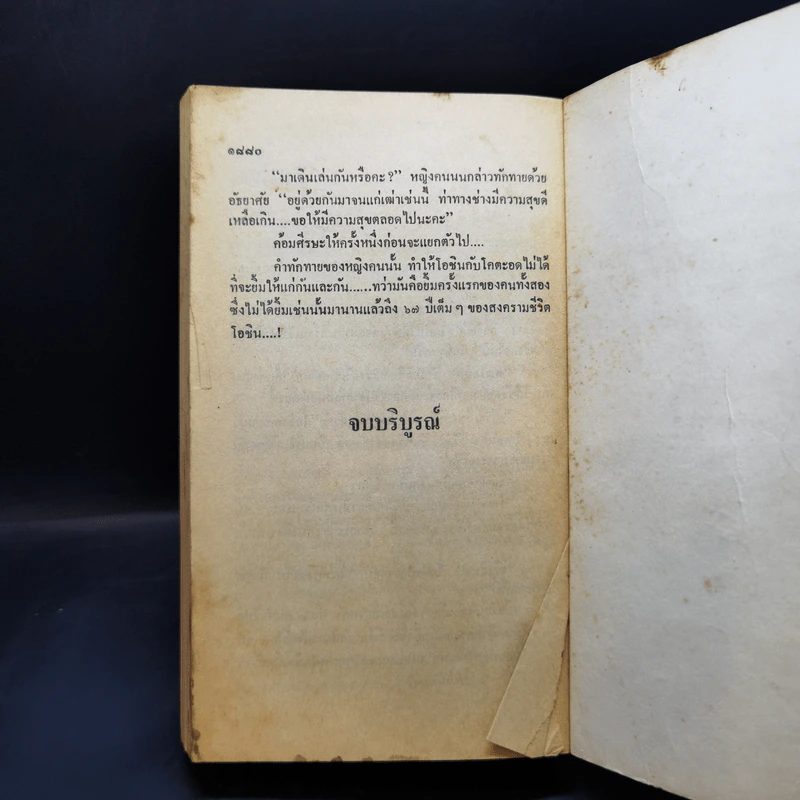 ๑๘๘๐
“มาเดินเล่นกันหรือคะ?” หญิงคนนนกล่าวทักทายด้วย
อัธยาศัย “อยู่ด้วยกันมาจนแก่เฒ่าเช่นนี้ ท่าทางช่างมีความสุขดี
เหลือเกิน....ขอให้มีความสุขตลอดไปนะคะ”
ค้อมศีรษะให้ครั้งหนึ่งก่อนจะแยกตัวไป....
คำทักทายของหญิงคนนั้น ทำให้โอชินกับโคตะอดไม่ได้
ที่จะยิ้มให้แก่กันและกัน......ทว่ามันคือยิ้มครั้งแรกของคนทั้งสอง
ซึ่งไม่ได้ยิ้มเช่นนั้นมานานแล้วถึง ๖๗ ปีเต็ม ๆ ของสงครามชีวิต
โอชิน....!
จบบริบูรณ์